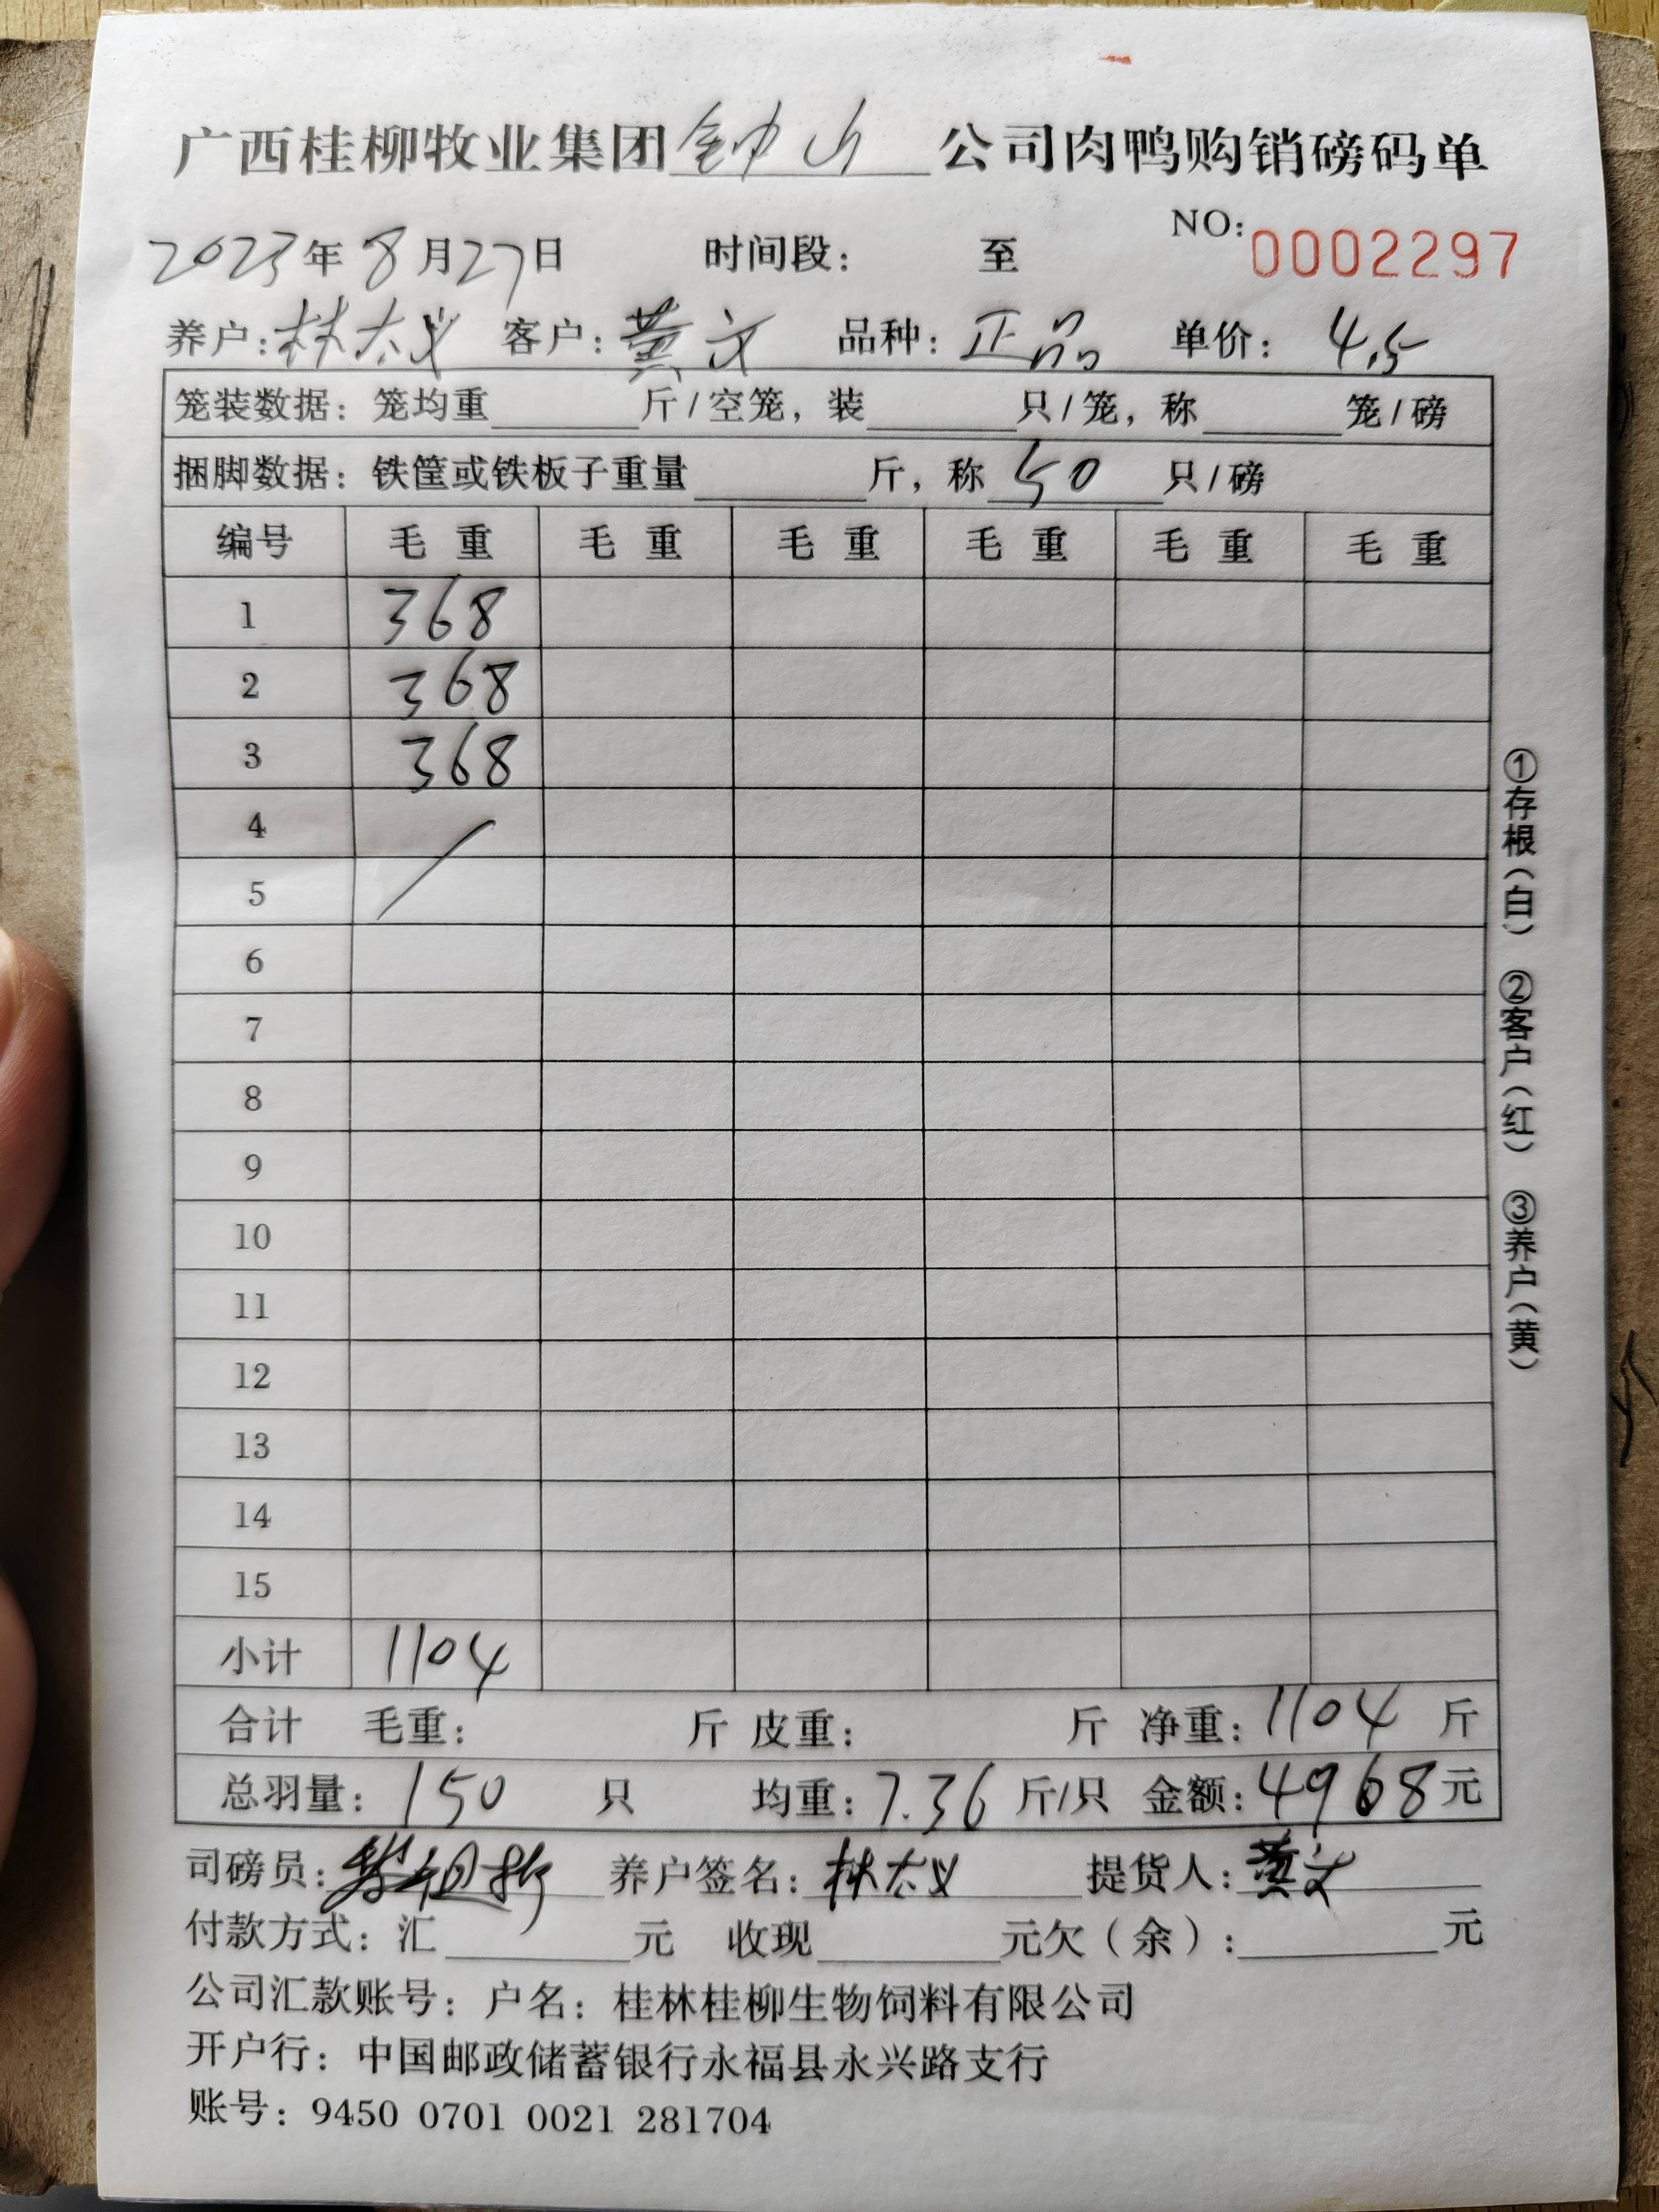 广西桂柳牧业集团钟山公司肉鸭购销磅码单
NO: 0002297
2023年8月27日 时间段： 至
养户：林太义 客户：黄文 品种：正品 单价：4.5
笼装数据：笼均重 斤/空笼，装 只/笼，称 笼/磅
捆脚数据：铁筐或铁板子重量 斤，称 50 只/磅
编号 毛重 毛重 毛重 毛重 毛重 毛重
1 368
2 368
3 368
4
5
6
7
8
9
10
11
12
13
14
15
小计 1104
合计 毛重： 斤 皮重： 斤 净重：1104 斤
总羽量：150 只 均重：7.36 斤/只 金额：4968元
司磅员： 养户签名：林太义 提货人：黄文
付款方式：汇 元 收现 元欠（余）： 元
公司汇款账号：户名：桂林桂柳生物饲料有限公司
开户行：中国邮政储蓄银行永福县永兴路支行
账号：9450 0701 0021 281704
①存根（白） ②客户（红） ③养户（黄）